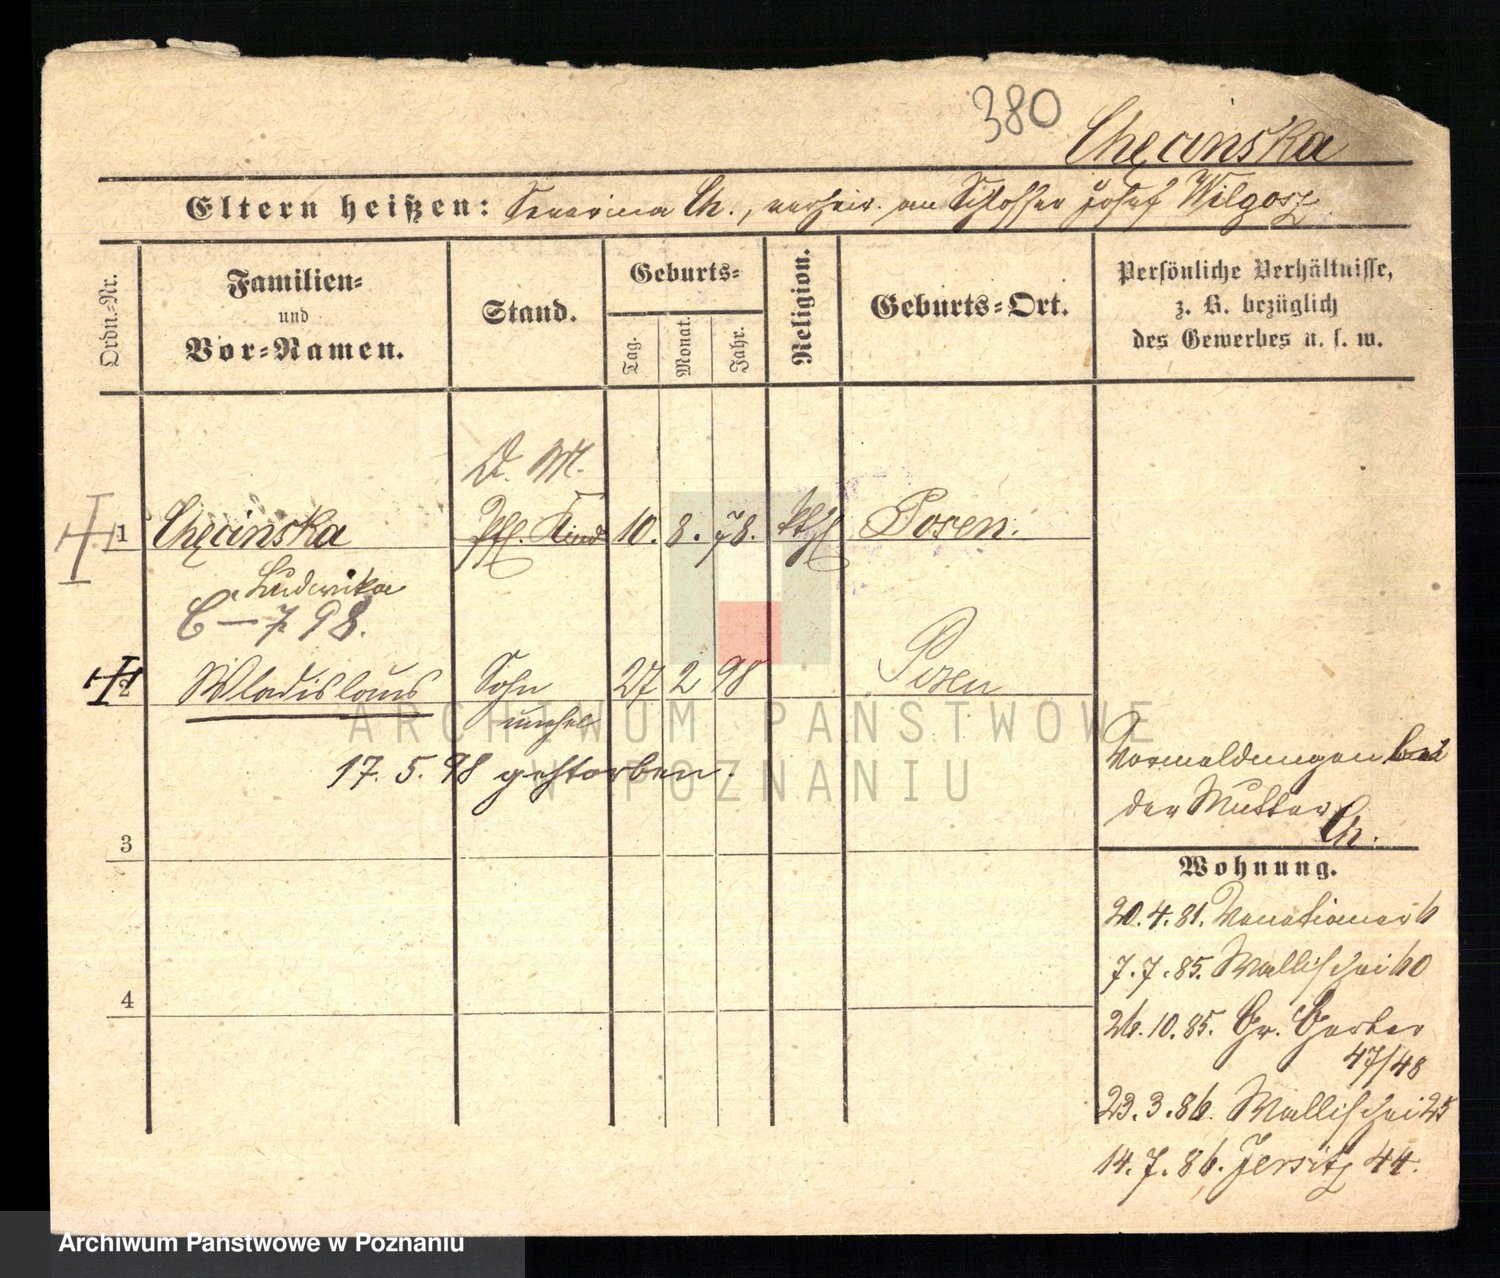 380
Chęcinska
Eltern heißen: Severina Ch., verheir. an Schlosser Josef Wilgosz
Ordn.-Nr.
Familien-
und
Vor-Namen.
Stand.
Geburts-
Tag.
Monat.
Jahr.
Religion.
Geburts-Ort.
Persönliche Verhältnisse,
z. B. bezüglich
des Gewerbes u. s. w.
D. M.
1 Chęcinska Pfl. Kind 10. 8. 78. kth Posen.
Ludwika
C - 7 98.
2 Wladislaus Sohn 27 2 98 Posen
unehel
17. 5. 98 gestorben.
Vormeldungen bei
der Mutter
Ch.
3
Wohnung.
20. 4. 81. Venetianer 6
7. 7. 85. Wallischei 60
26. 10. 85. Gr. Gerber
47/48
4
23. 3. 86. Wallischei 25
14. 7. 86. Jersitz 44.
ARCHIWUM PAŃSTWOWE
W POZNANIU
Archiwum Państwowe w Poznaniu